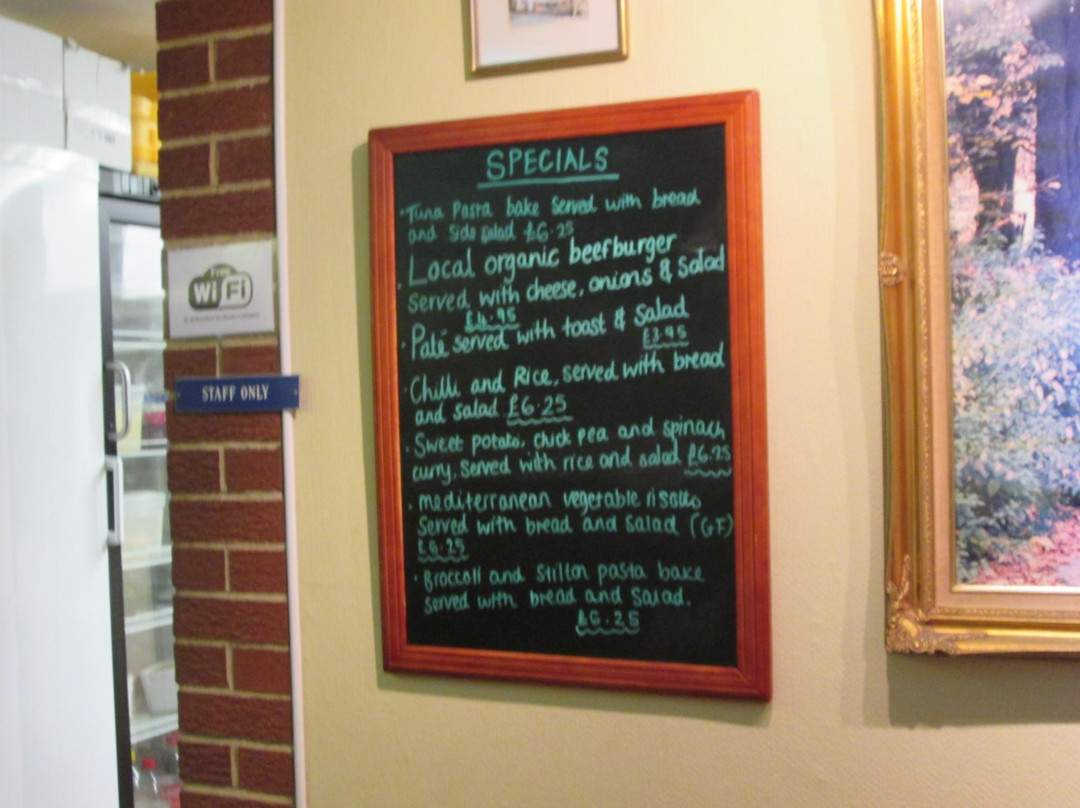 SPECIALS
· Tuna Pasta bake Served with bread
and Side salad £6·25
· Local organic beefburger
served with cheese, onions & Salad
£4·95
· Paté served with toast & Salad
£3·95
· Chilli and Rice, served with bread
and salad £6·25
· Sweet potato, chick pea and spinach
curry, served with rice and salad £6.25
· mediterranean vegetable risotto
Served with bread and salad (GF)
£6·25
· Broccoli and Stilton pasta bake
served with bread and salad.
£6·25
Free
Wi Fi
STAFF ONLY